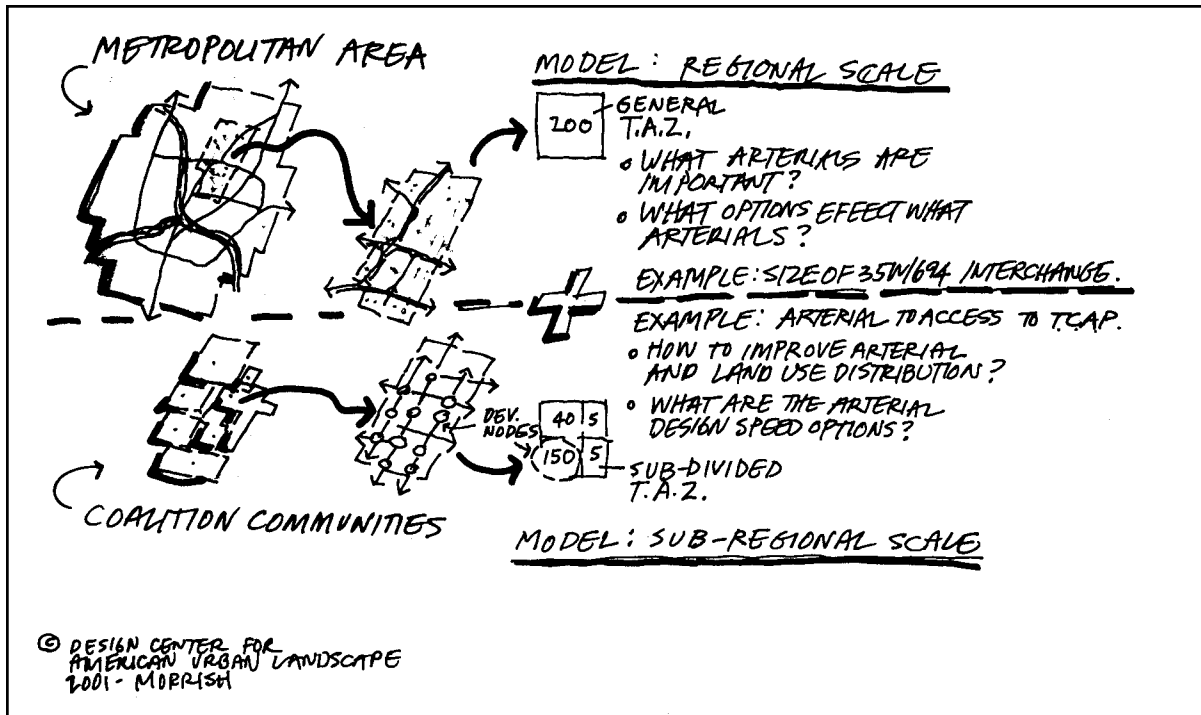 METROPOLITAN AREA
MODEL: REGIONAL SCALE
200
GENERAL
T.A.Z.
• WHAT ARTERIALS ARE
IMPORTANT?
• WHAT OPTIONS EFFECT WHAT
ARTERIALS?
EXAMPLE: SIZE OF 35W/694 INTERCHANGE.
EXAMPLE: ARTERIAL TO ACCESS TO T.C.A.P.
• HOW TO IMPROVE ARTERIAL
AND LAND USE DISTRIBUTION?
• WHAT ARE THE ARTERIAL
DESIGN SPEED OPTIONS?
DEV.
NODES
40 5
150 5
SUB-DIVIDED
T.A.Z.
COALITION COMMUNITIES
MODEL: SUB-REGIONAL SCALE
© DESIGN CENTER FOR
AMERICAN URBAN LANDSCAPE
2001 - MORRISH